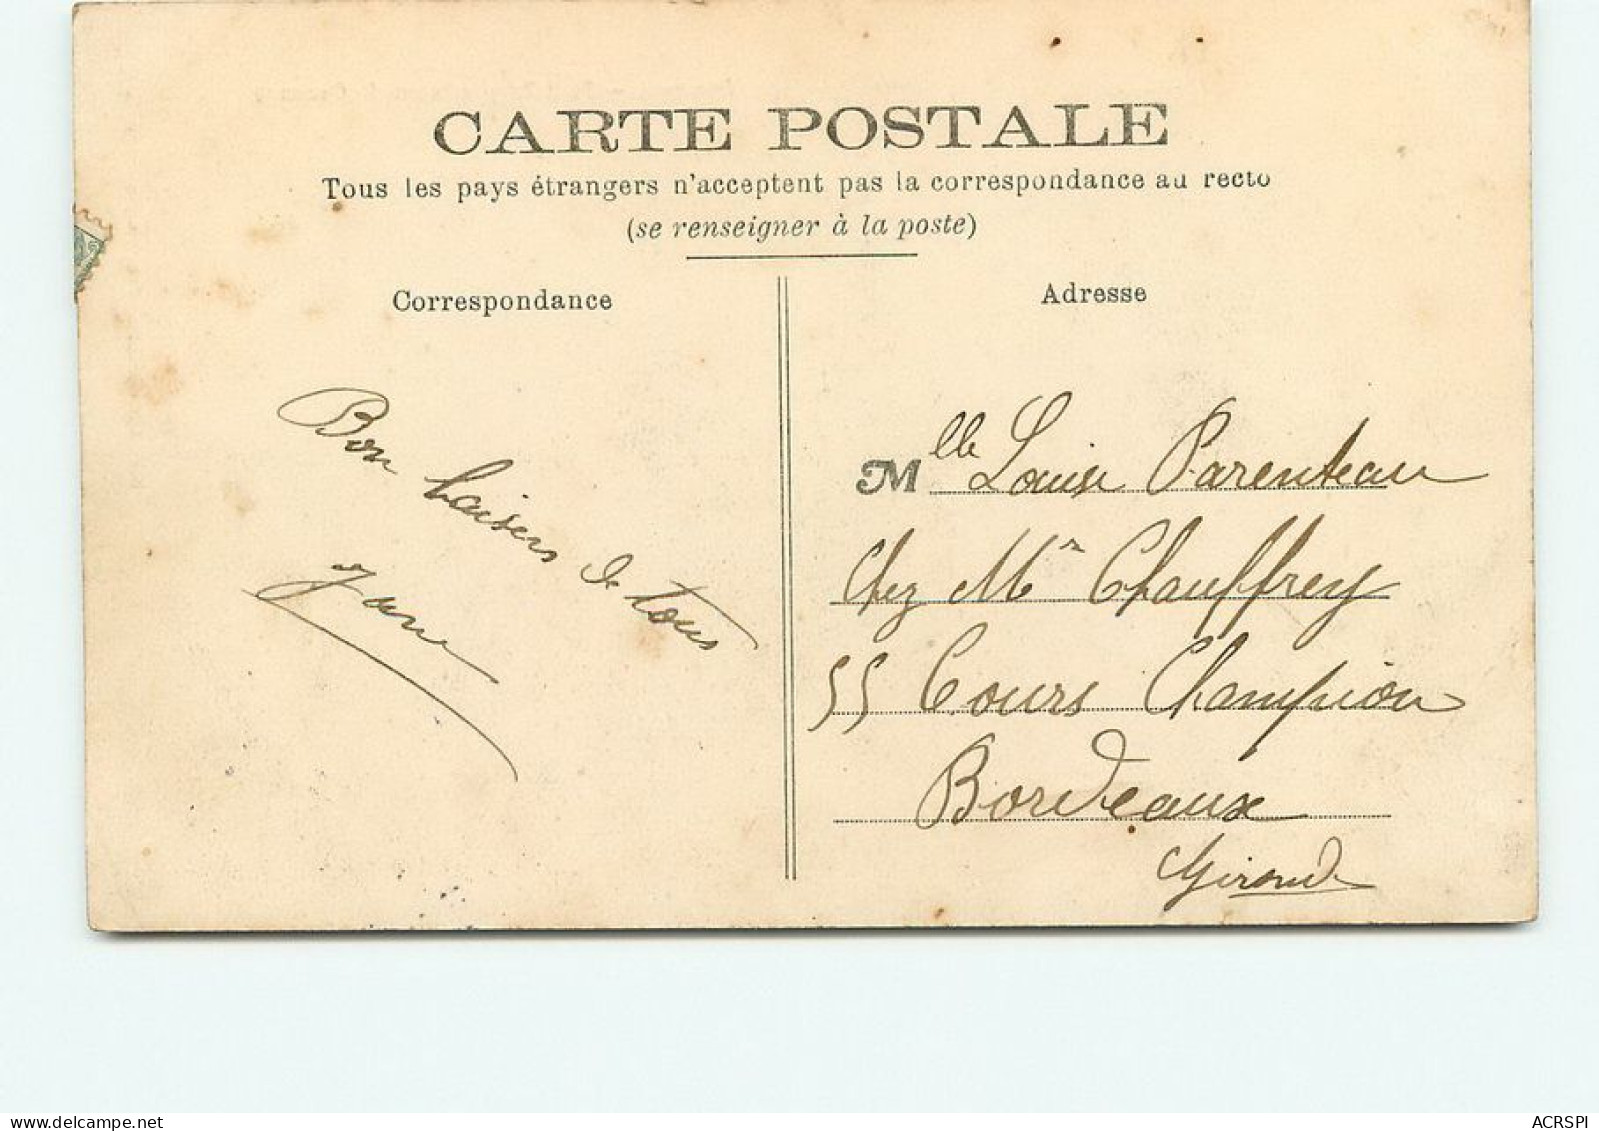 CARTE POSTALE
Tous les pays étrangers n'acceptent pas la correspondance au recto
(se renseigner à la poste)
Correspondance
Bon baisers de tous
Adresse
Mlle Louise Parenteau
Chez Mr Chauffrey
55 Cours Champion
Bordeaux
Gironde
delcampe.net
ACRSPI